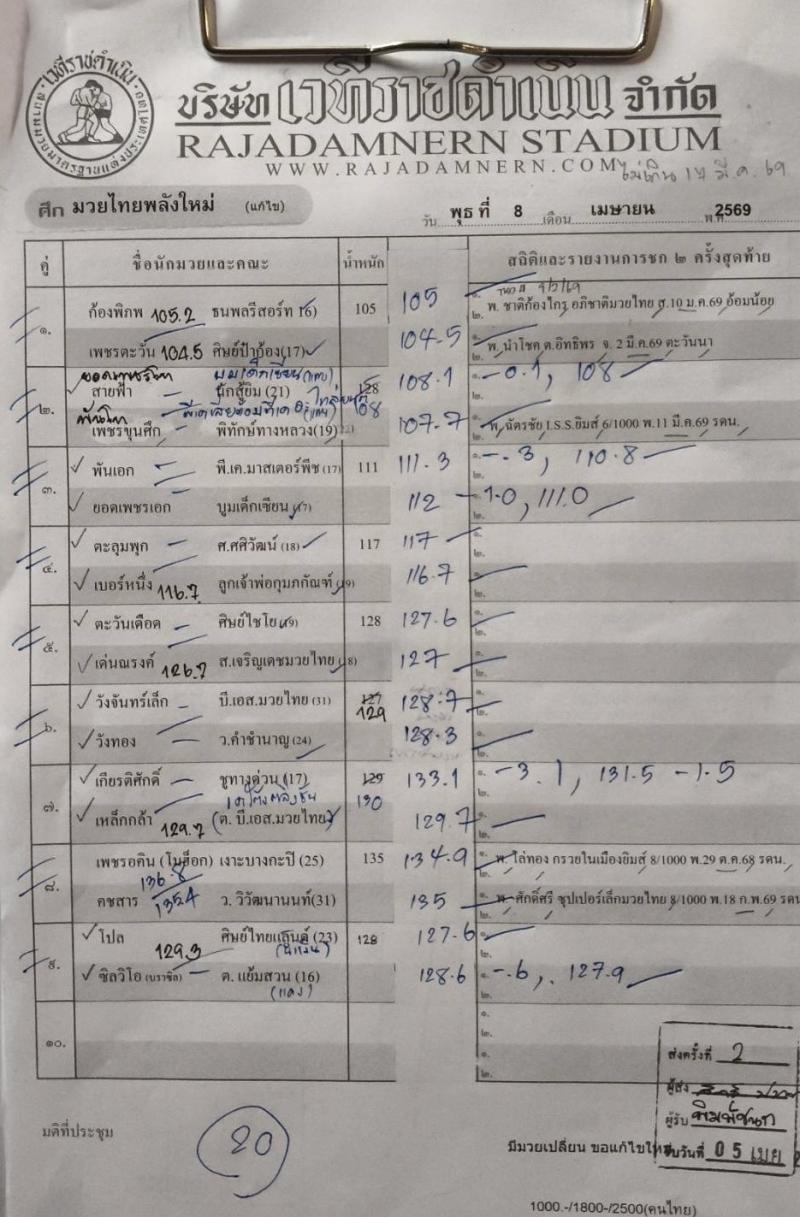 เวทีราชดำเนิน
บริษัท เวทีราชดำเนิน จำกัด
RAJADAMNERN STADIUM
WWW.RAJADAMNERN.COM
ไม่เกิน 14 มี.ค. 69
ศึก มวยไทยพลังใหม่ (แก้ไข)
วัน พุธ ที่ 8 เดือน เมษายน พ.ศ. 2569
คู่ ชื่อนักมวยและคณะ น้ำหนัก สถิติและรายงานการชก ๒ ครั้งสุดท้าย
๑. ก้องพิภพ 105.2 ธนพลรีสอร์ท 16) 105 105 ๑. พ. ชาติก้องไกร อภิชาติมวยไทย ส.10 ม.ค.69 อ้อมน้อย
เพชรตะวัน 104.5 ศิษย์ป๋าก้อง(17) 104.5 ๑. พ. นำโชค ต.อิทธิพร จ. 2 มี.ค.69 ตะวันนา
๒.
๒. สายฟ้า นักสู้ยิม (21) 128 108 108.1 ๑. -0.1, 108
๒.
เพชรขุนศึก พิทักษ์ทางหลวง(19) 107.7 ๑. พ. ฉัตรชัย I.S.S.ยิมส์ 6/1000 พ.11 มี.ค.69 รดน.
๒.
๓. พันเอก พี.เค.มาสเตอร์พีช (17) 111 111.3 ๑. -.3, 110.8
๒.
ยอดเพชรเอก บูมเด็กเซียน (17) 112 ๑. -1.0, 111.0
๒.
๔. ตะลุมพุก ศ.ศศิวัฒน์ (18) 117 117 ๑.
๒.
เบอร์หนึ่ง 116.7 ลูกเจ้าพ่อกุมภกัณฑ์ (19) 116.7 ๑.
๒.
๕. ตะวันเดือด ศิษย์ไชโย (19) 128 127.6 ๑.
๒.
เด่นณรงค์ 126.7 ส.เจริญเดชมวยไทย (18) 127 ๑.
๒.
๖. วังจันทร์เล็ก บี.เอส.มวยไทย (31) 127 129 128.7 ๑.
๒.
วังทอง ว.คำชำนาญ (24) 128.3 ๑.
๒.
๗. เกียรติศักดิ์ ชูทางด่วน (17) 129 130 133.1 ๑. -3.1, 131.5 -1.5
๒.
เหล็กกล้า 129.7 (ต. บี.เอส.มวยไทย) 129.7 ๑.
๒.
๘. เพชรอคิน (โมฮ็อก) เงาะบางกะปิ (25) 135 134.9 ๑. พ. ไล่ทอง กรวยในเมืองยิมส์ 8/1000 พ.29 ต.ค.68 รดน.
136.8 ๒.
คชสาร 135.4 ว. วิวัฒนานนท์(31) 135 ๑. พ. ศักดิ์ศรี ซุปเปอร์เล็กมวยไทย 8/1000 พ.18 ก.พ.69 รดน
๒.
๙. โปล 129.3 ศิษย์ไทยแลนด์ (23) 128 127.6 ๑.
(น้ำเงิน) ๒.
ซิลวิโอ (บราซิล) ต. แย้มสวน (16) 128.6 ๑. -.6, 127.9
(แดง) ๒.
๑๐. ๑.
๒.
๑.
๒.
ส่งครั้งที่ 2
ผู้ส่ง
ผู้รับ พิมพ์ชนก
มติที่ประชุม 20
มีมวยเปลี่ยน ขอแก้ไขใหม่ รับวันที่ 05 เมย
1000.-/1800-/2500(คนไทย)